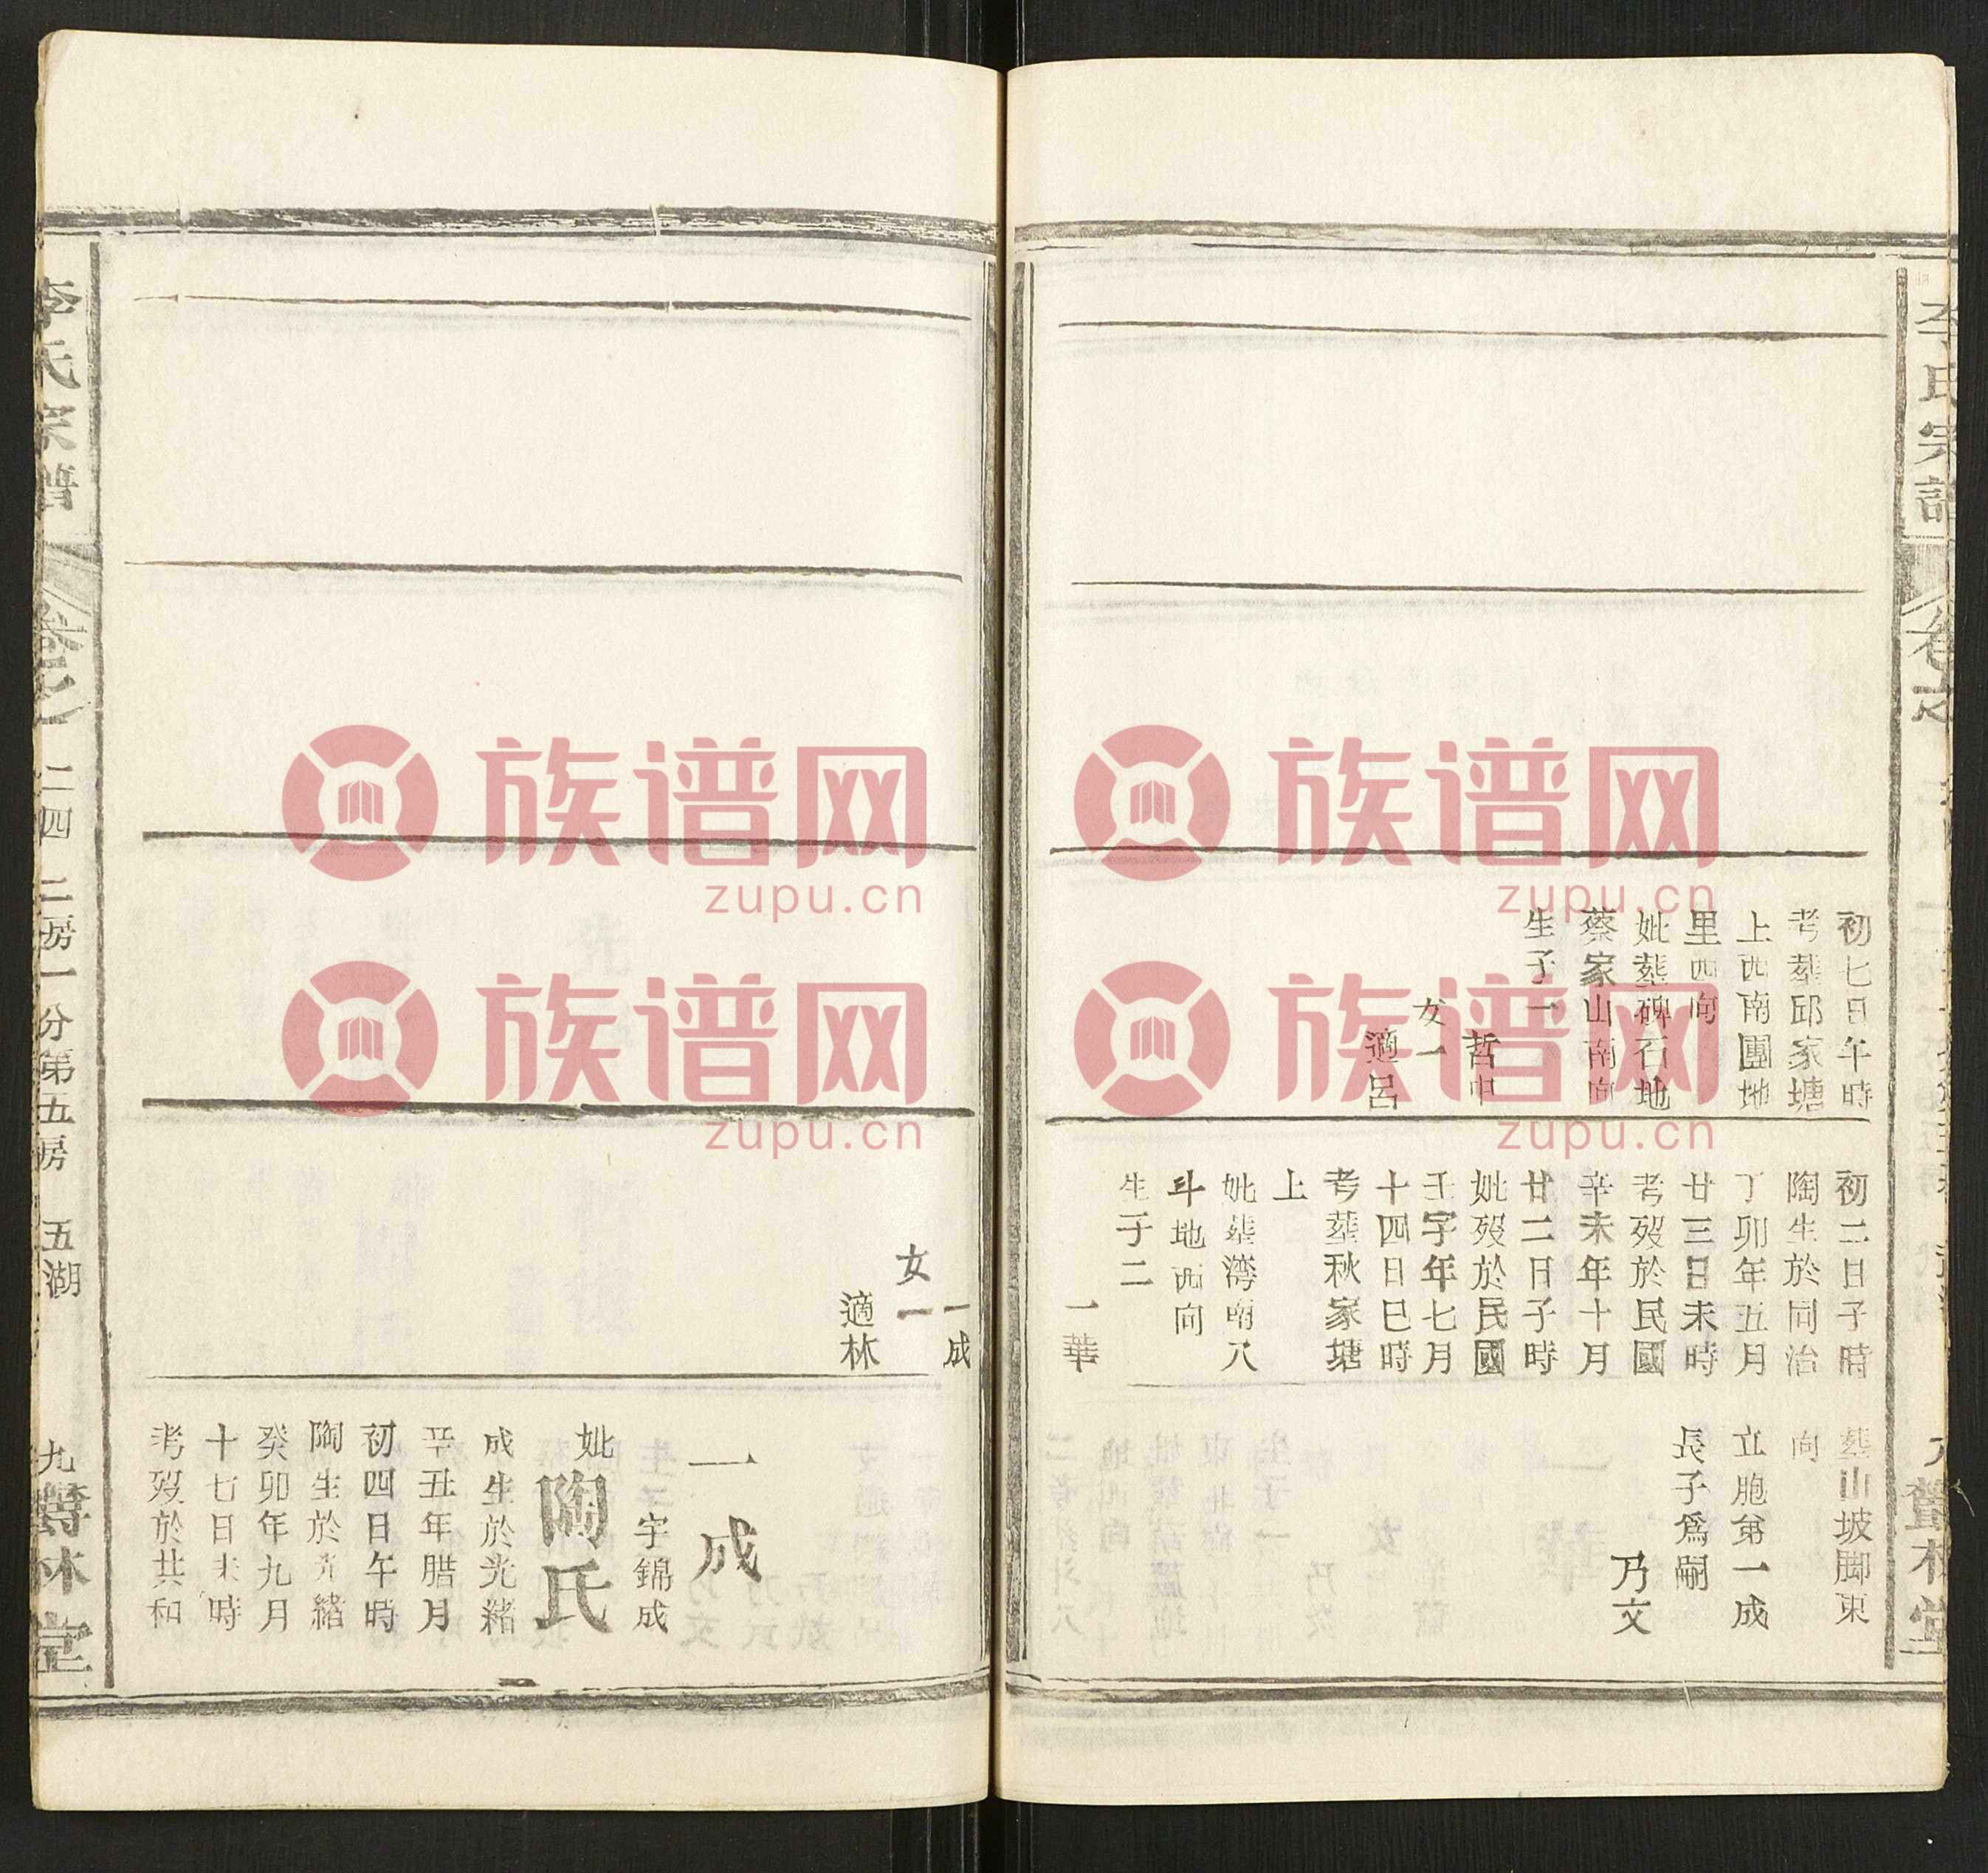 李氏宗譜
初七日午時
考塟邱家塘
上西南團地
里西向
妣塟碑石地
蔡家山南向
生子一
哲中
女一
適呂
初二日子時
陶生於同治
丁卯年五月
廿三日未時
考歿於民國
辛未年十月
廿二日子時
妣歿於民國
壬字年七月
十四日巳時
考塟秋家塘
上
妣塟湾南八
斗地西向
生子二
一華
塟山坡脚東
向
立胞弟一成
長子為嗣
乃文
一成
女一
適林
一成
字錦成
妣陶氏
成生於光緒
辛丑年腊月
初四日午時
陶生於光緒
癸卯年九月
十七日未時
考歿於共和
李氏宗譜
卷之
二四
二房一分第五房
五湖
九聲林堂
族谱网
zupu.cn
族谱网
zupu.cn
族谱网
zupu.cn
族谱网
zupu.cn